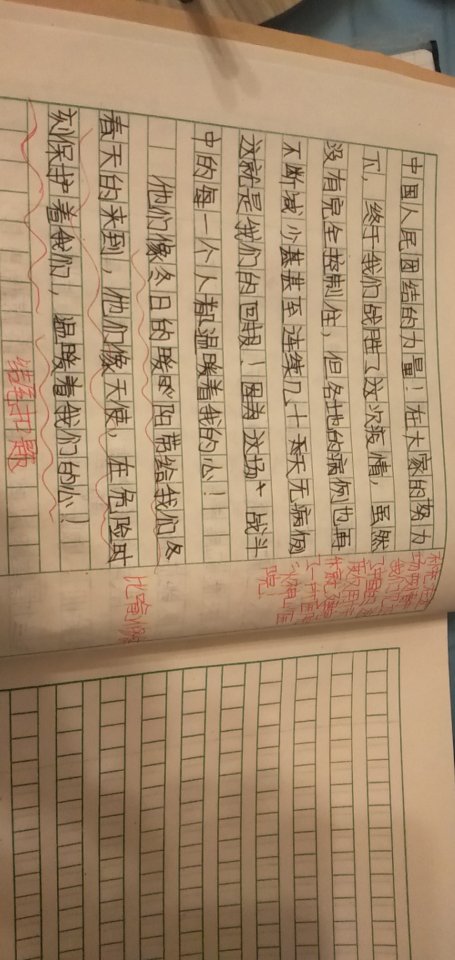 中国人民团结的力量！在大家的努力
下，终于我们战胜了这次疫情，虽然
没有完全控制住，但各地的病例也再
不断减少甚甚至连续几十天天无病例
这就是我们的回报！因为这场战斗
中的每一个人都温暖着我的心！
他们像冬日的暖阳带给我们冬
春天的来到，他们像天使，在危险时
刻保护着我们，温暖着我们的心！
结尾扣题
比喻修